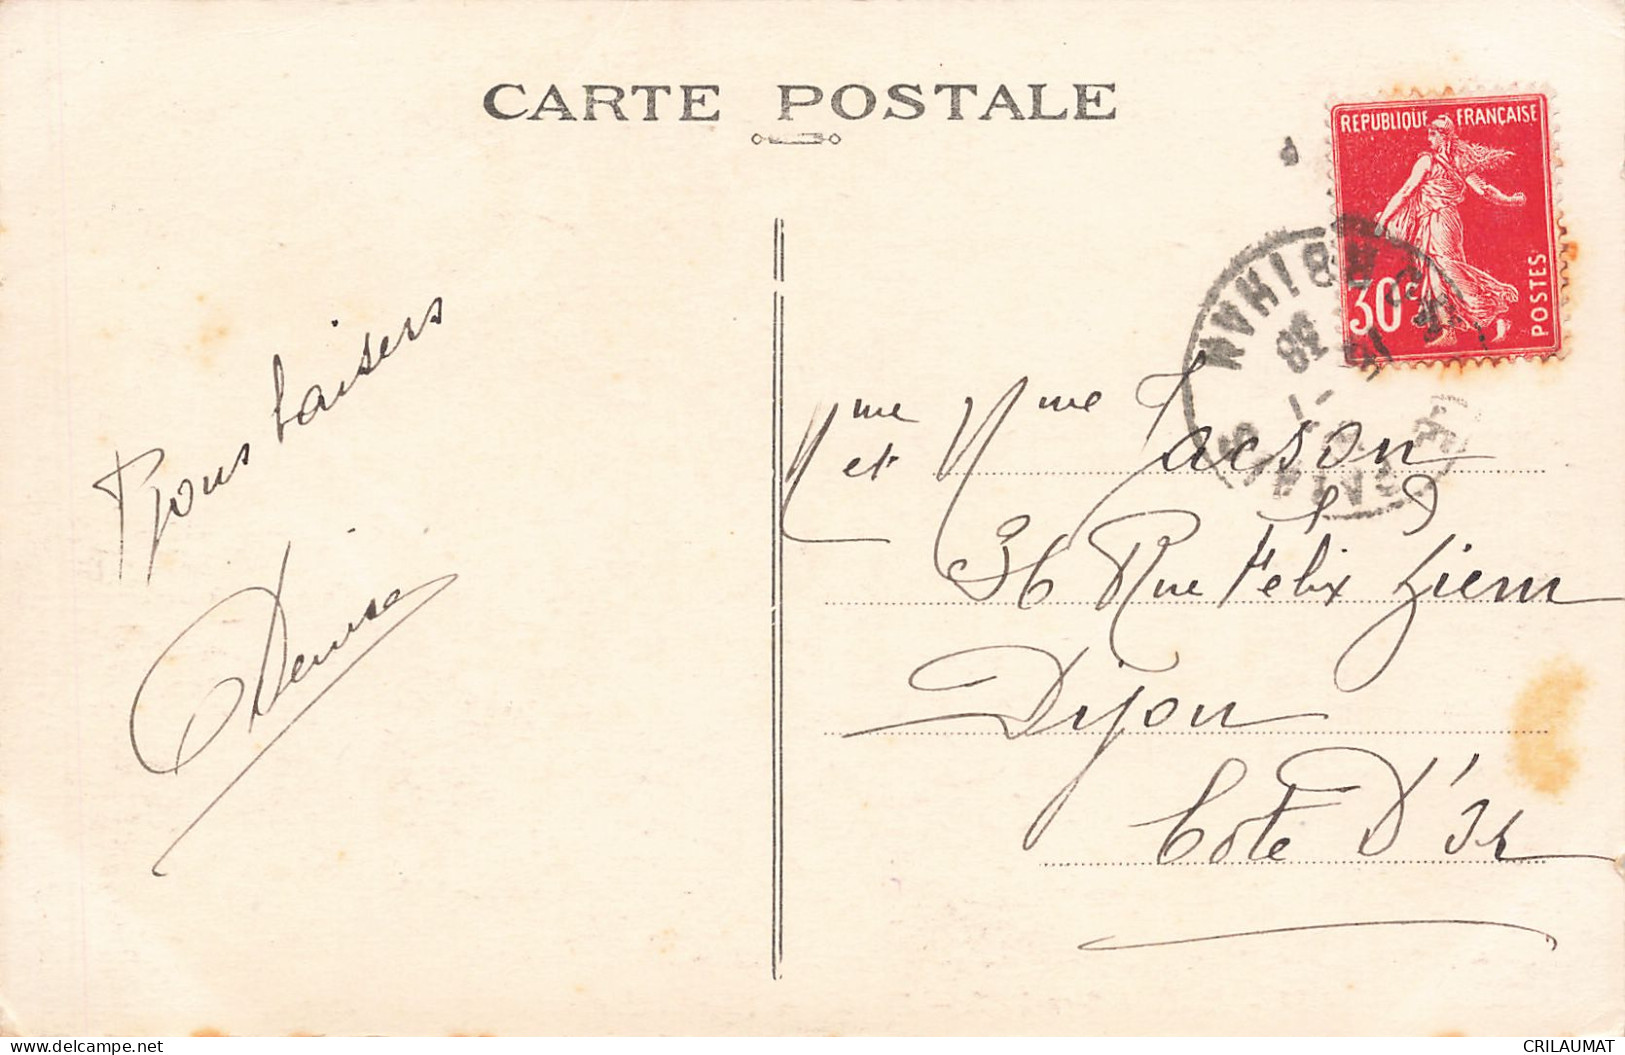 CARTE POSTALE
REPUBLIQUE FRANÇAISE
30c
POSTES
38
Bons baisers
Denise
Mme et Mme Jacson
36 Rue Felix Ziem
Dijon
Cote D'Or
CRILAUMAT